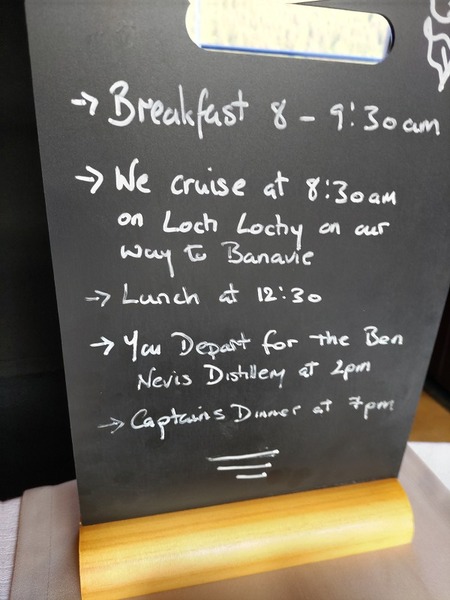 → Breakfast 8 - 9:30am
→ We cruise at 8:30am
on Loch Lochy on our
way to Banavie
→ Lunch at 12:30
→ You Depart for the Ben
Nevis Distillery at 2pm
→ Captains Dinner at 7pm